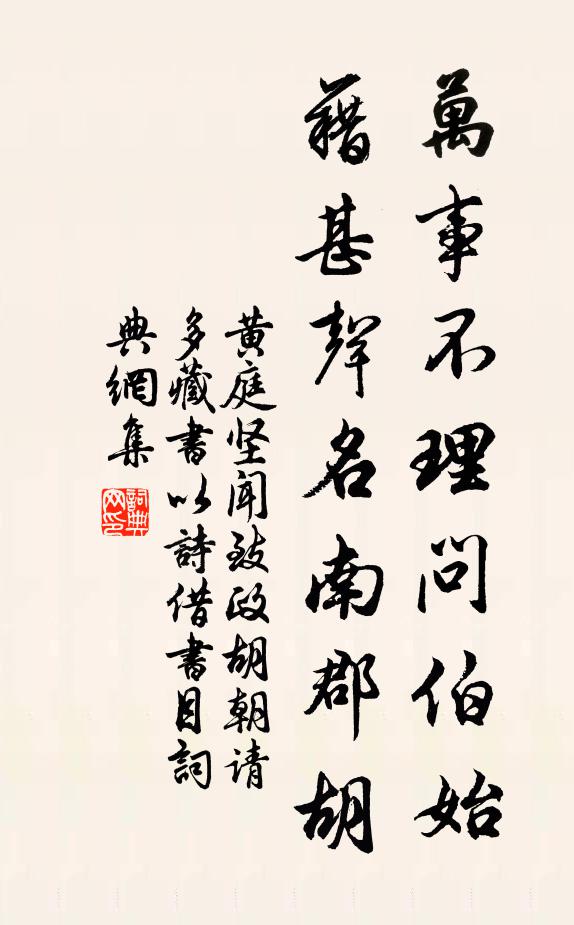 萬事不理問伯始
藉甚聲名南郡胡
黄庭坚聞致政胡朝请
多藏書以詩借書目詞
典網集
詞典
网印